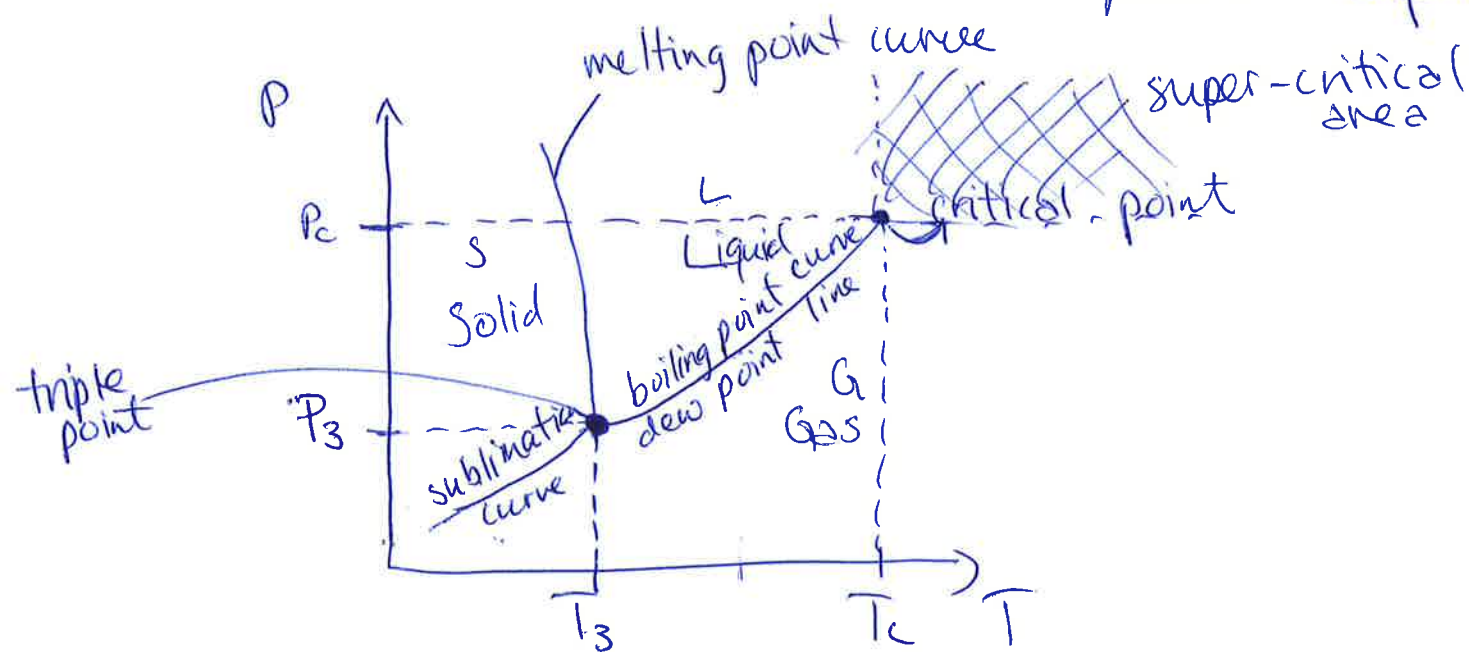 melting point curve
P
super-critical
area
Pc
L
Liquid
critical point
S
Solid
boiling point curve
dew point line
triple
point
P3
G
Gas
sublimation
curve
T3
Tc
T